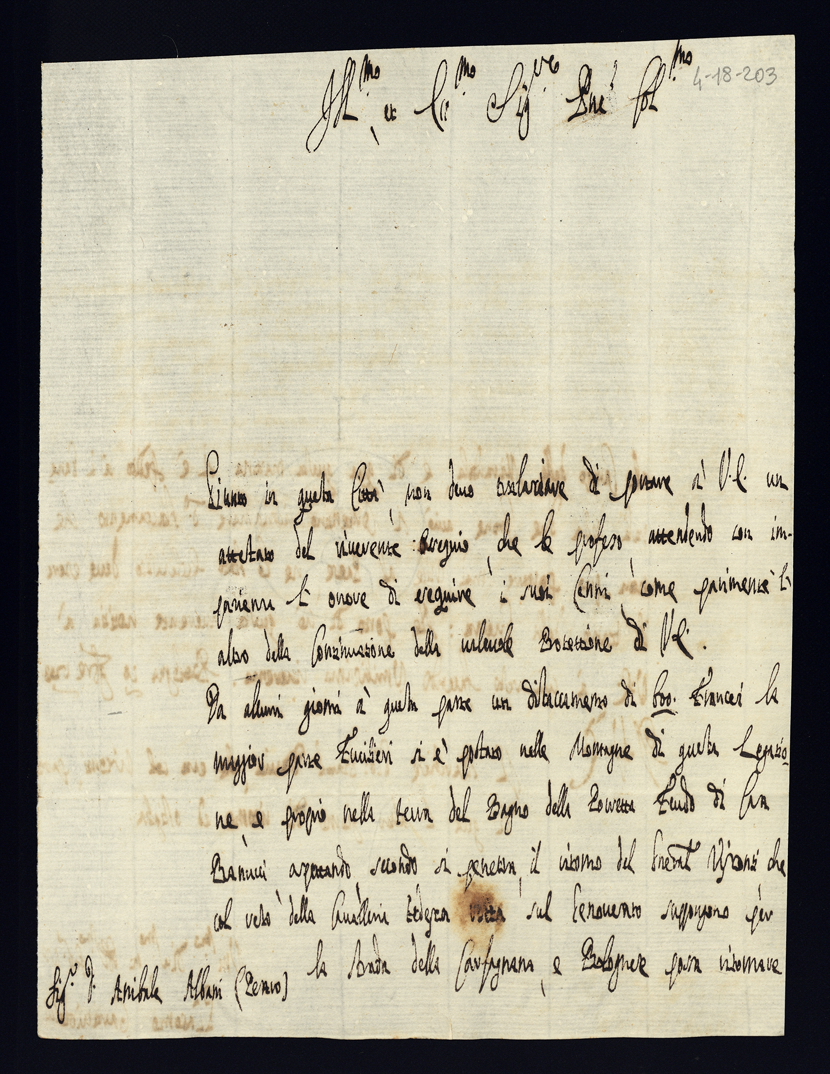 Ill.mo et Ecc.mo Sig.re P.ne Col.mo
4-18-203
Giunto in questa Città, non devo tralasciare di portare à V. E. un
attestato del riverente ossequio, che le professo, attendendo con im-
pazienza l' onore di eseguire i suoi Cenni, come parimente l'
altro della Continuazione della valevole Protezzione di V. E.
Da alcuni giorni à questa parte un distaccamento di 600. Francesi la
maggior parte Fucilieri si è postato nelle Montagne di questa Legazio-
ne, e proprio nella terra del Bagno della Porretta Feudo di Casa
Ranucci aspettando, secondo si penetra, il ritorno del General Visconti che
col resto della Cavalleria tedesca sul Genovesato suppongono per
la strada della Carfagnana, e Bolognese possa ritornare
Sig.r D. Annibale Albani (Pesaro)